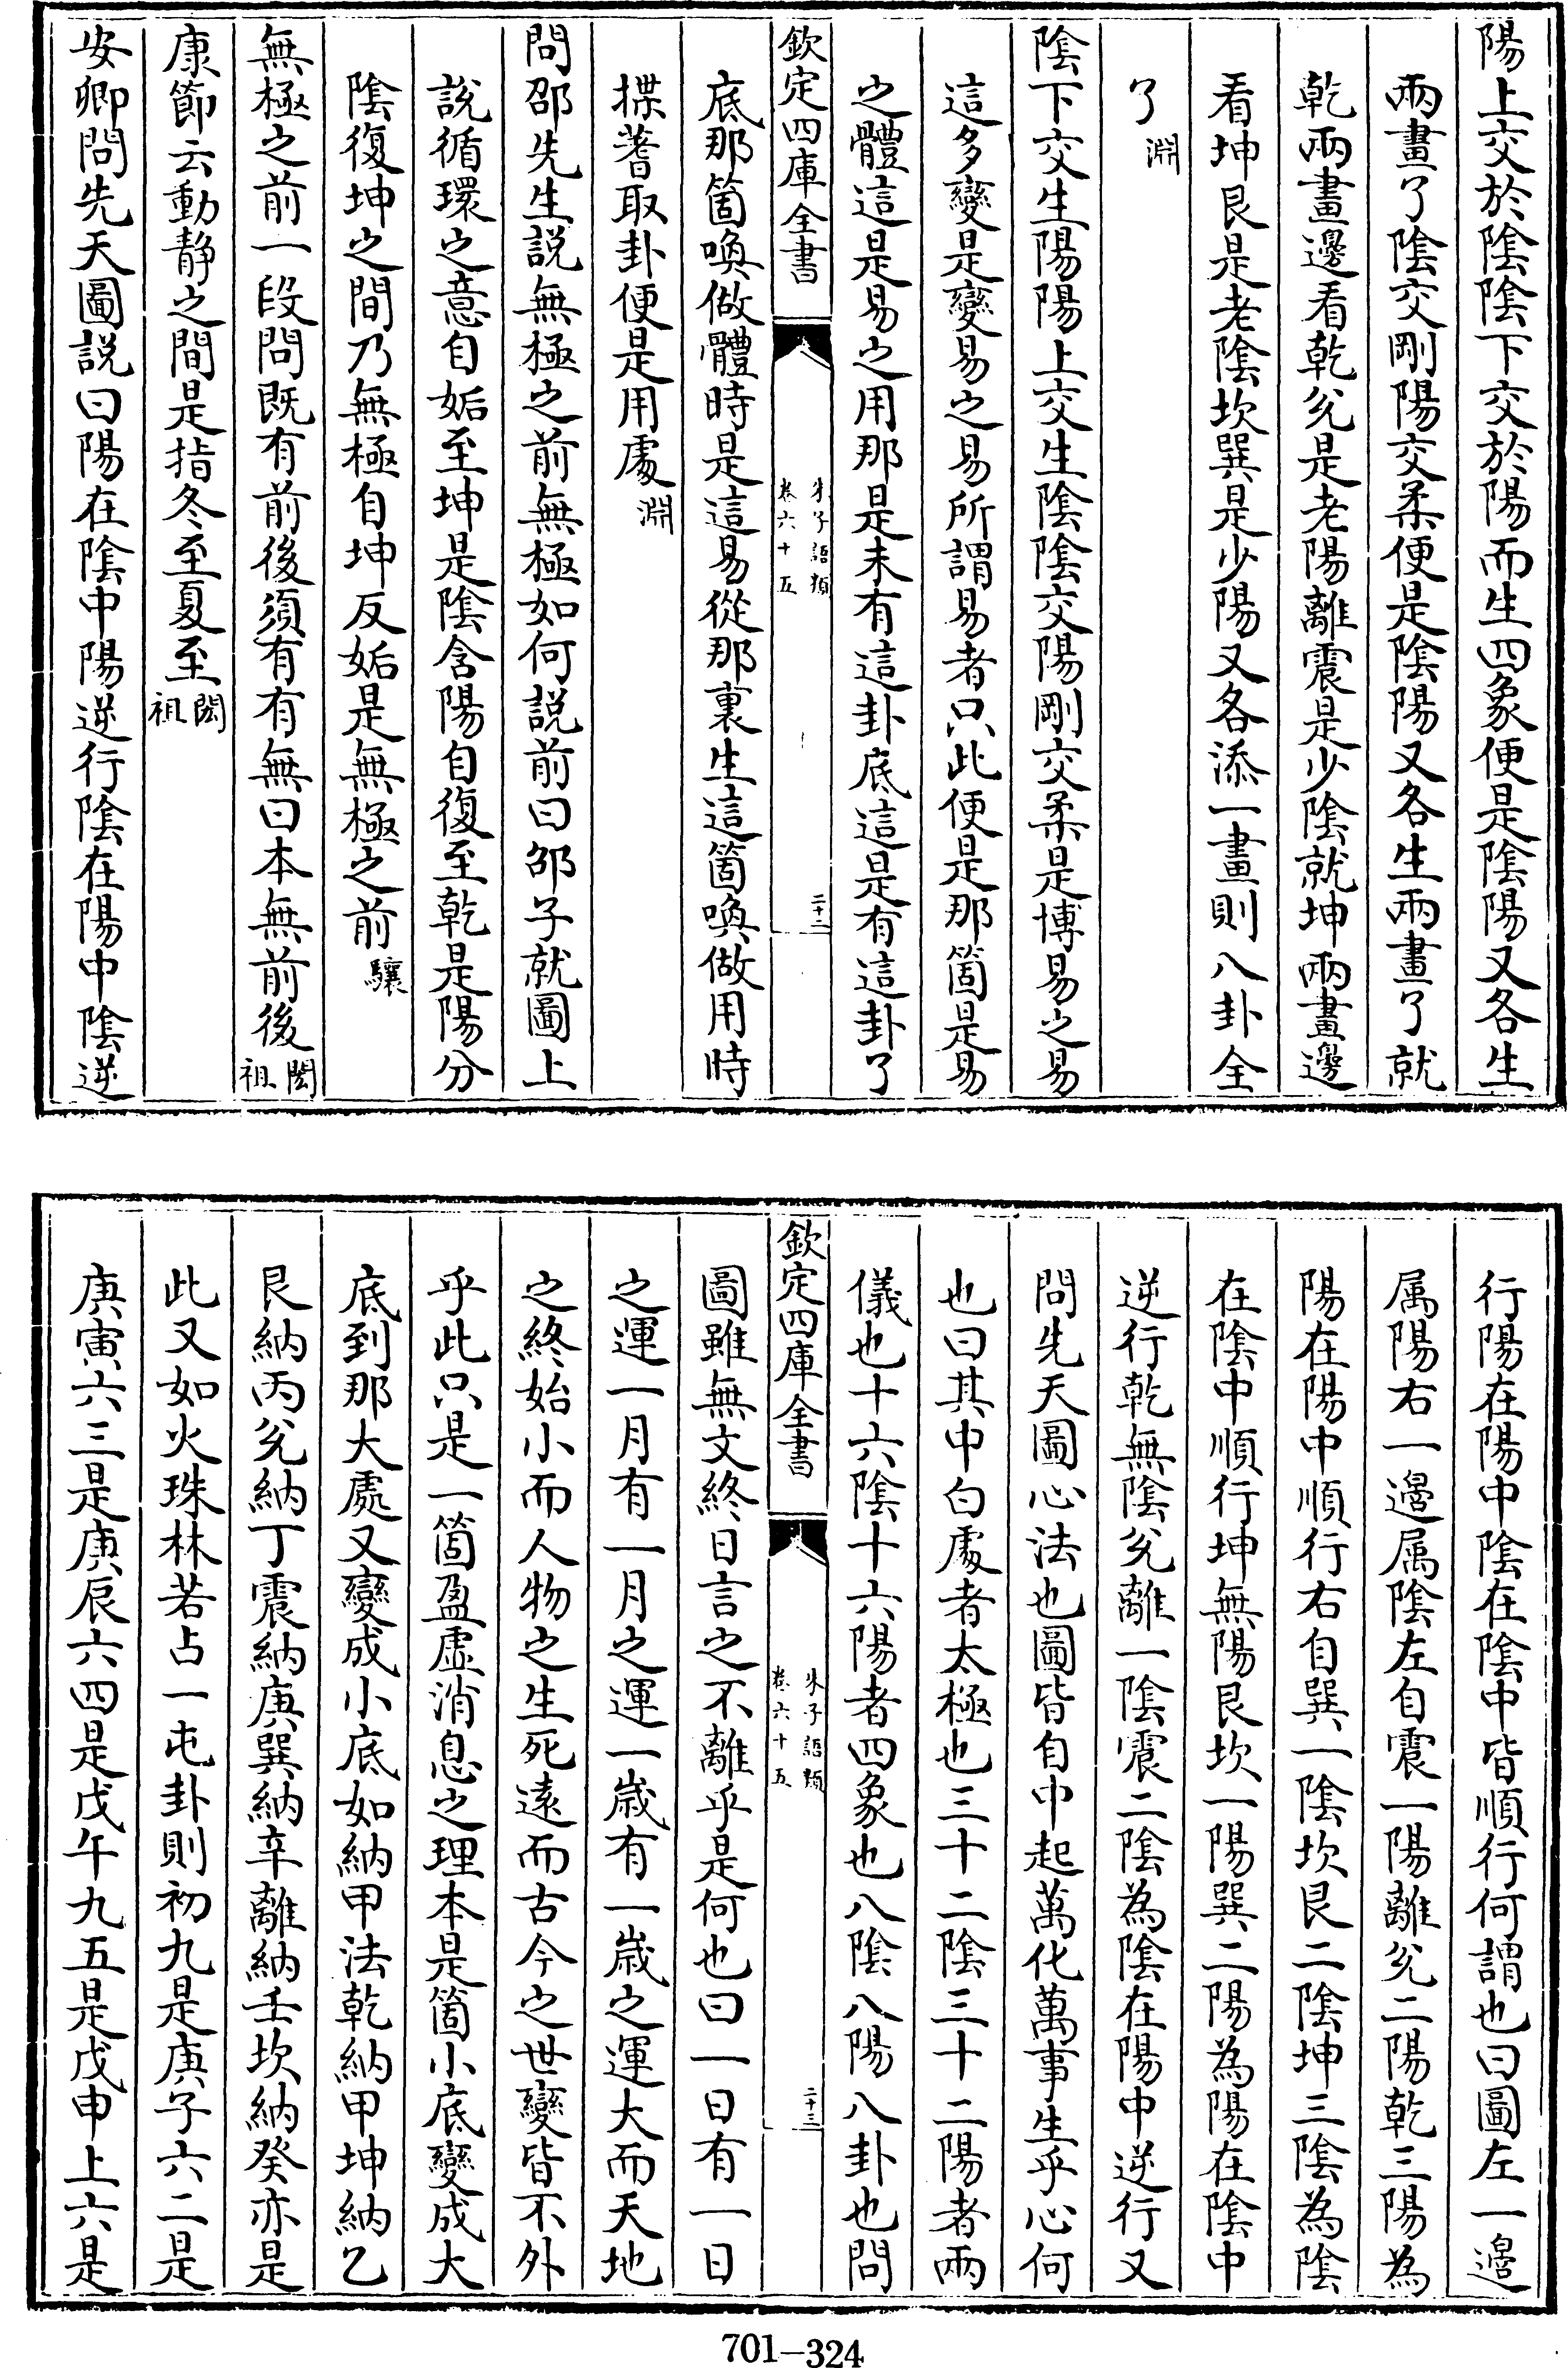 陽上交於陰陰下交於陽而生四象便是陰陽又各生
兩畫了陰交剛陽交柔便是陰陽又各生兩畫了就
乾兩畫邊看乾兌是老陽離震是少陰就坤兩畫邊
看坤艮是老陰坎巽是少陽又各添一畫則八卦全
了淵
陰下交生陽陽上交生陰陰交陽剛交柔是博易之易
這多變是變易之易所謂易者只此便是那箇是易
之體這是易之用那是未有這卦底這是有這卦了
欽定四庫全書
朱子語類
卷六十五
二十二
底那箇喚做體時是這易從那裏生這箇喚做用時
揲蓍取卦便是用處淵
問邵先生說無極之前無極如何說前曰邵子就圖上
說循環之意自姤至坤是陰含陽自復至乾是陽分
陰復坤之間乃無極自坤反姤是無極之前驤
無極之前一段問既有前後須有有無曰本無前後閎祖
康節云動靜之間是指冬至夏至閎祖
安卿問先天圖說曰陽在陰中陽逆行陰在陽中陰逆
行陽在陽中陰在陰中皆順行何謂也曰圖左一邊
属陽右一邊属陰左自震一陽離兌二陽乾三陽為
陽在陽中順行右自巽一陰坎艮二陰坤三陰為陰
在陰中順行坤無陽艮坎一陽巽二陽為陽在陰中
逆行乾無陰兌離一陰震二陰為陰在陽中逆行又
問先天圖心法也圖皆自中起萬化萬事生乎心何
也曰其中白處者太極也三十二陰三十二陽者兩
儀也十六陰十六陽者四象也八陰八陽八卦也問
欽定四庫全書
朱子語類
卷六十五
二十三
圖雖無文終日言之不離乎是何也曰一日有一日
之運一月有一月之運一歲有一歲之運大而天地
之終始小而人物之生死遠而古今之世變皆不外
乎此只是一箇盈虛消息之理本是箇小底變成大
底到那大處又變成小底如納甲法乾納甲坤納乙
艮納丙兌納丁震納庚巽納辛離納壬坎納癸亦是
此又如火珠林若占一屯卦則初九是庚子六二是
庚寅六三是庚辰六四是戊午九五是戊申上六是
701-324